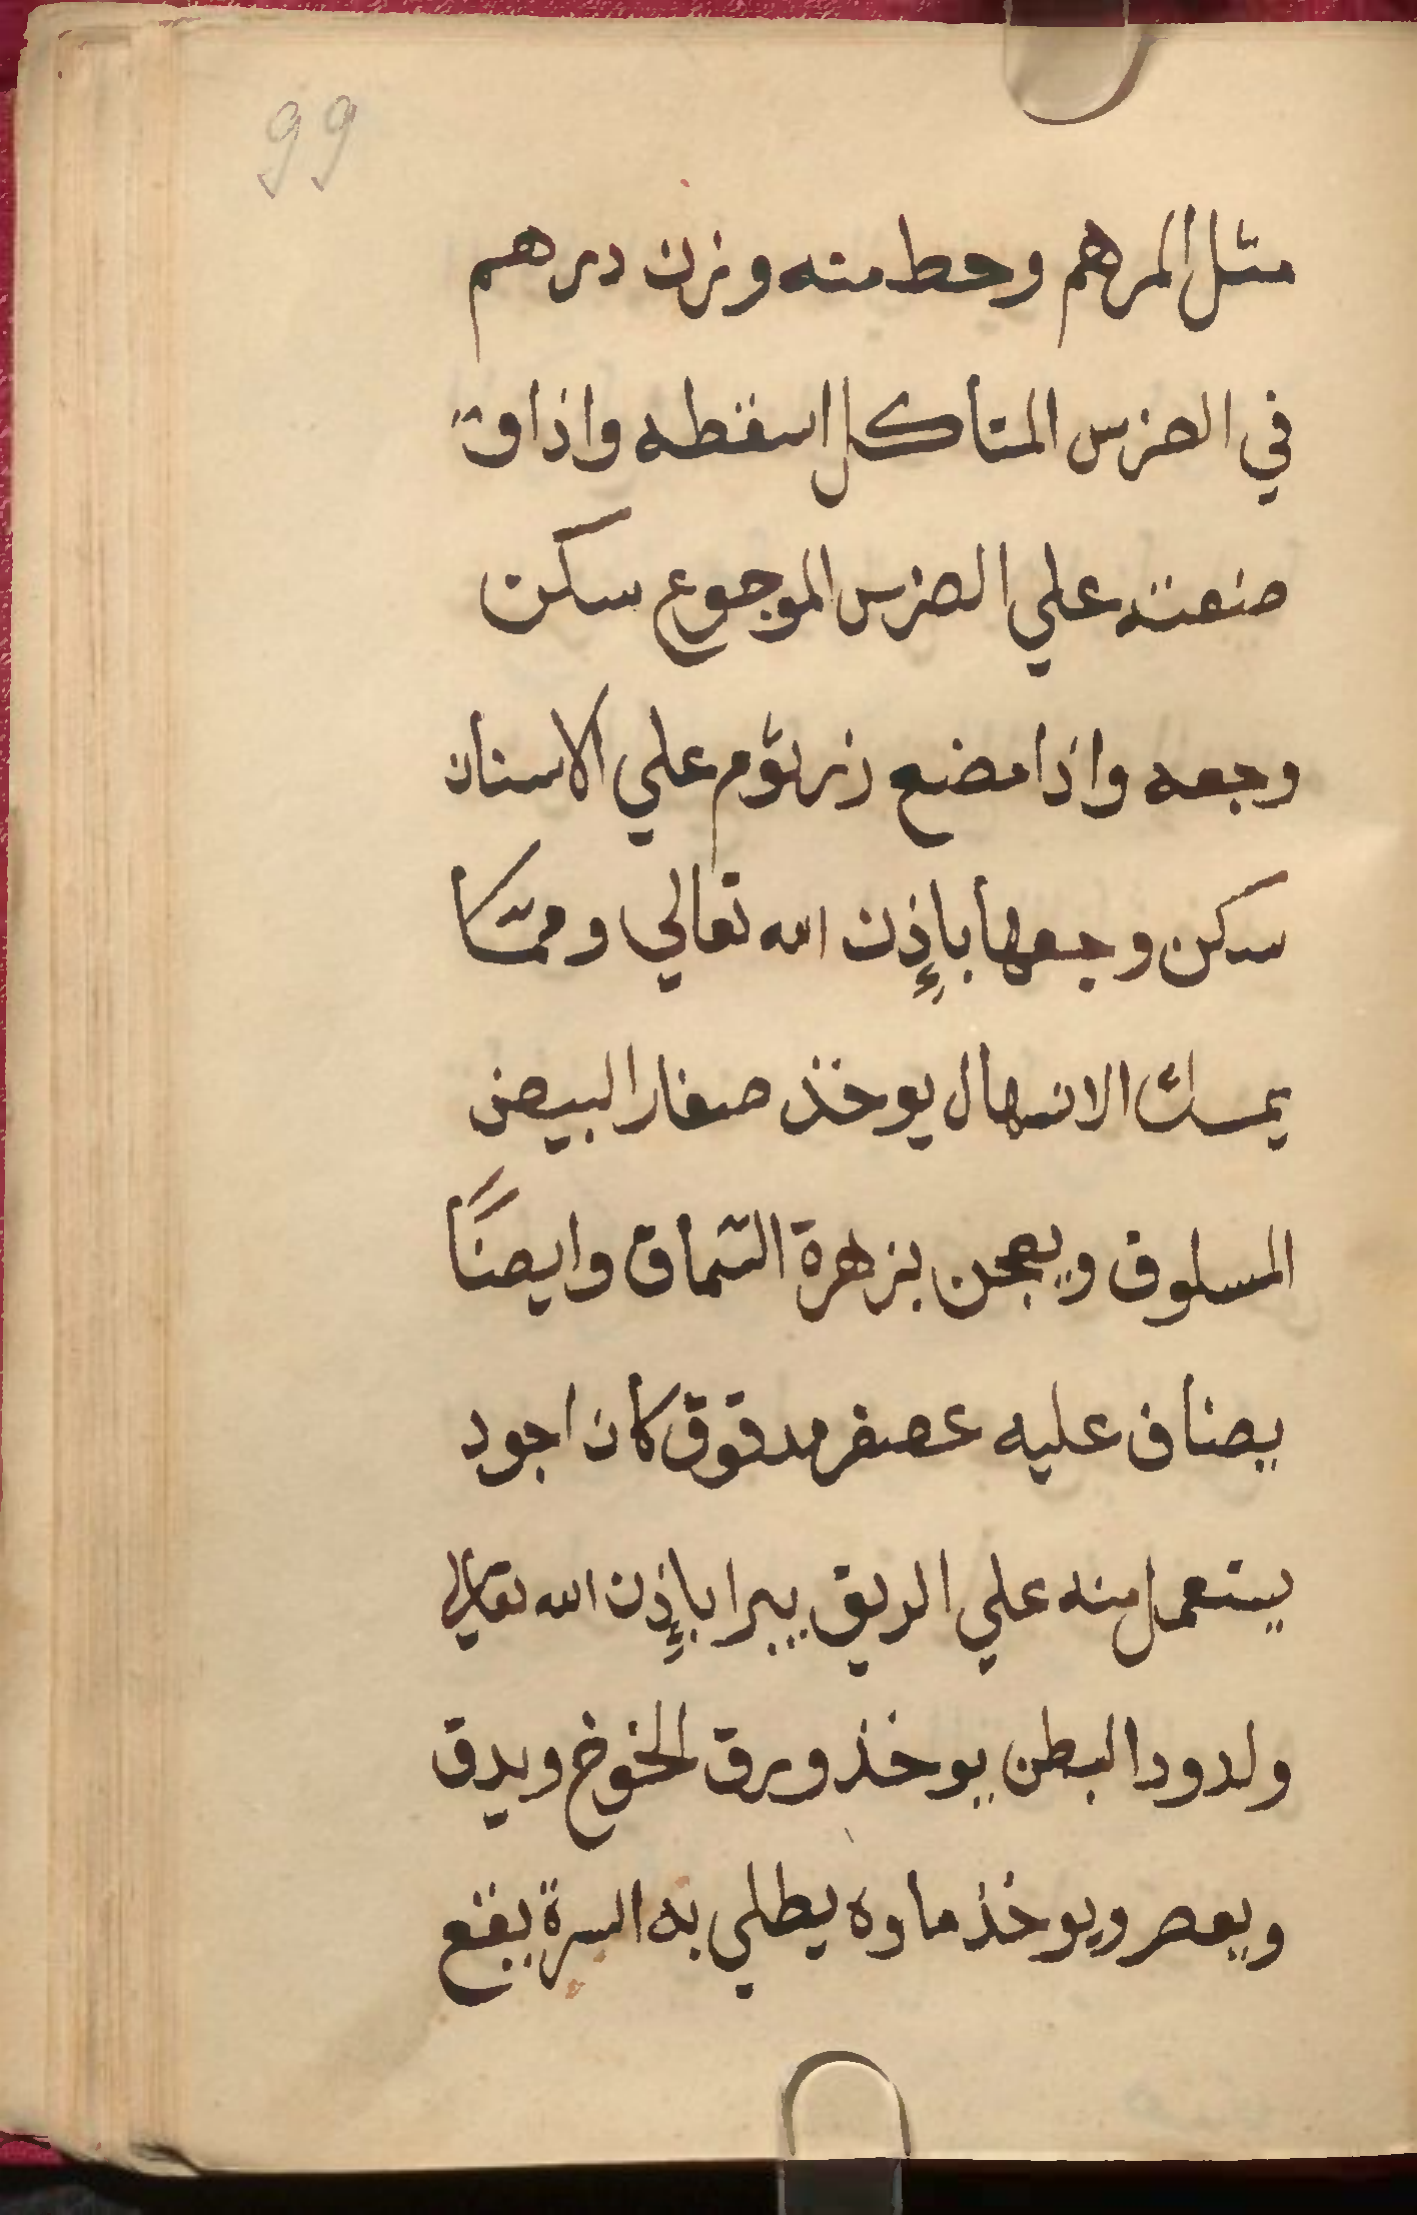 99
مثل المرهم وحط منه وزن درهم
في الضرس المتاكل اسقطه واذا
ضعته علي الضرس الموجوع سكن
وجعه واذا مضغ زر ثوم علي الاسنان
سكن وجعها بإذن الله تعالي ومما
يمسك الاسهال يوخذ صفار البيض
المسلوق ويعجن بزهرة السماق وايضًا
يضاف عليه عصفر مدقوق كان اجود
يستعمل منه علي الريق يبرا بإذن الله تعالي
ولدود البطن يوخذ ورق الخوخ ويدق
ويعصر ويوخذ ماوه يطلي به السرة ينفع